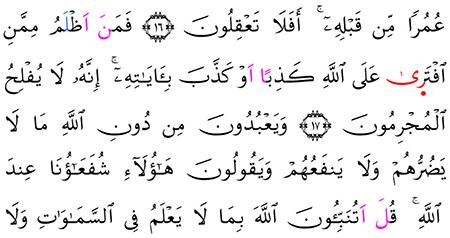 عُمُرًا مِّن قَبْلِهِۦٓ ۚ أَفَلَا تَعْقِلُونَ ١٦ فَمَنَ اَظْلَمُ مِمَّنِ
اِ۪فْتَر۪ىٰ عَلَى اَللَّهِ كَذِبًا اَوْ كَذَّبَ بِـَٔايَـٰتِهِۦٓ ۚ إِنَّهُۥ لَا يُفْلِحُ
اُ۬لْمُجْرِمُونَ ١٧ وَيَعْبُدُونَ مِن دُونِ اِللَّهِ مَا لَا
يَضُرُّهُمْ وَلَا يَنفَعُهُمْ وَيَقُولُونَ هَـٰٓؤُلَآءِ شُفَعَـٰٓؤُنَا عِندَ
اَللَّهِ ۚ قُلَ اَتُنَبِّـُٔونَ اَللَّهَ بِمَا لَا يَعْلَمُ فِى اِلسَّمَـٰوَٰتِ وَلَا